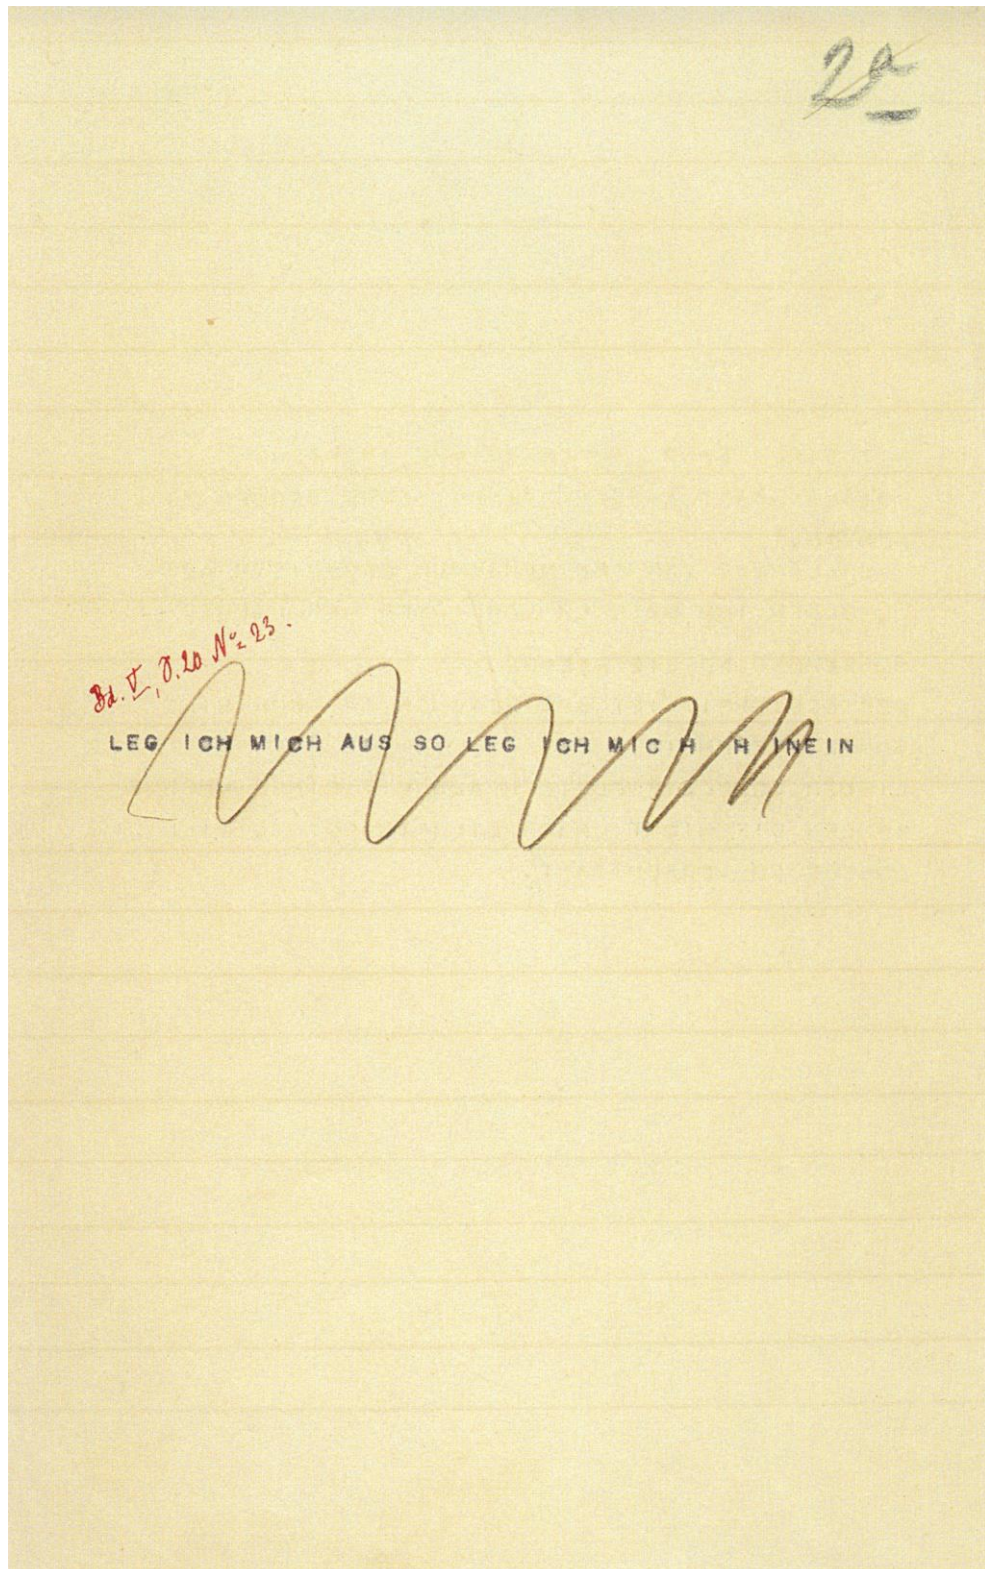 2a
Bd. V, S. 20 No 23.
LEG ICH MICH AUS SO LEG ICH MIC H H INEIN